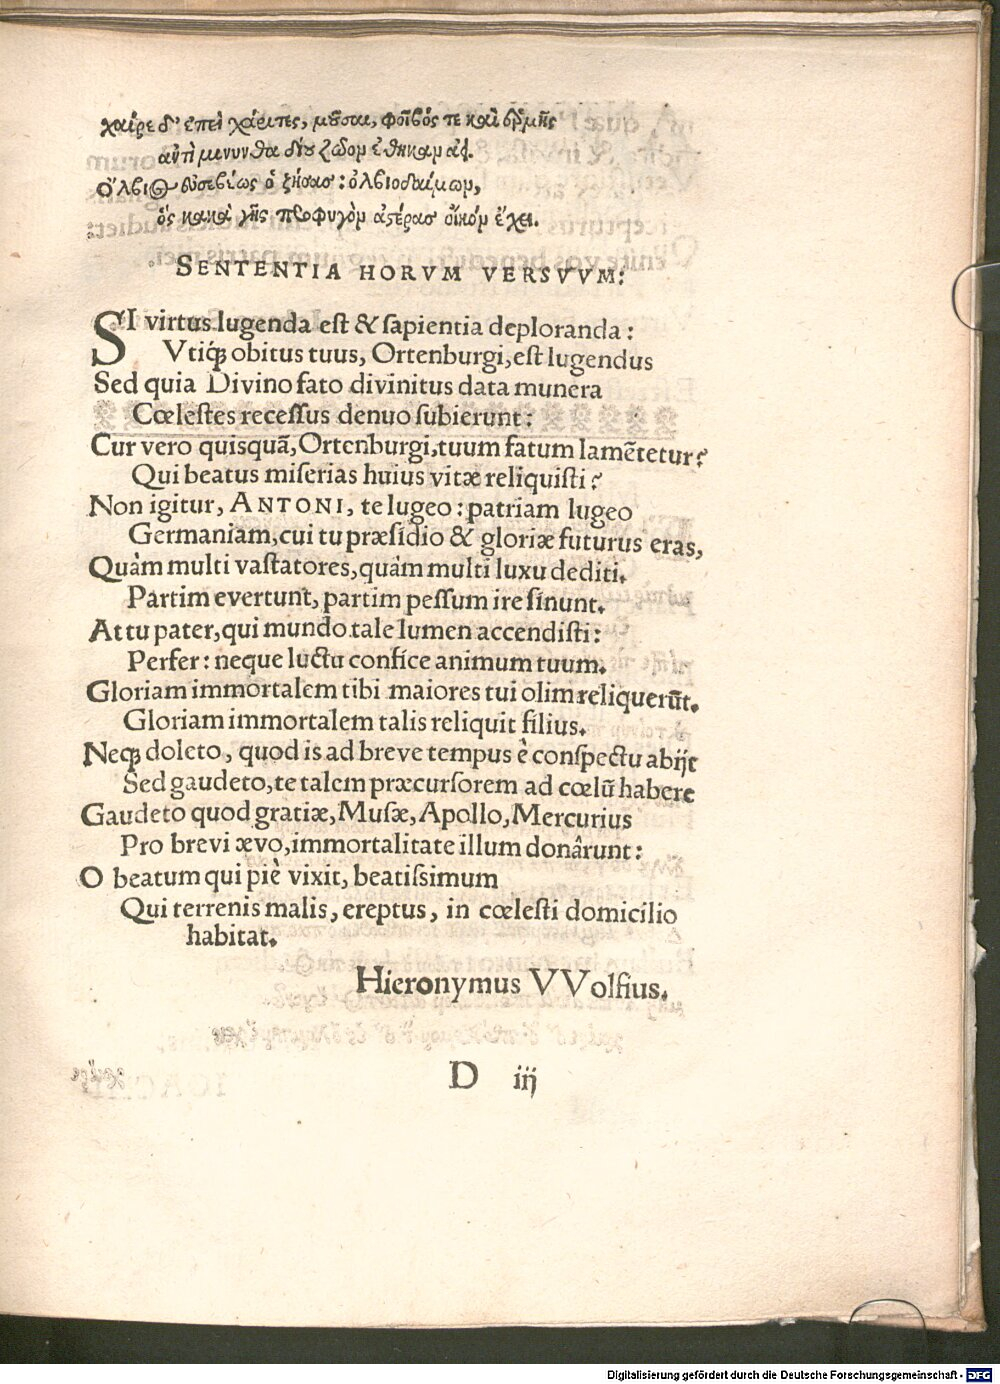 χαῖρε δ' ἐπεὶ χάριτες, μοῦσαι, φοῖβός τε καὶ ἑρμῆς
ἀντὶ μινυνθαδίου ζῶον ἔθηκαν ἀεί.
Ὄλβιος εὐσεβέως ὁ ζήσας: ὀλβιοδαίμων,
ὃς κακὰ γῆς προφυγὼν ἀστέρας οἶκον ἔχει.
SENTENTIA HORVM VERSVVM:
SI virtus lugenda est & sapientia deploranda:
Vtiq́; obitus tuus, Ortenburgi, est lugendus
Sed quia Divino fato divinitus data munera
Cœlestes recessus denuo subierunt:
Cur vero quisquã, Ortenburgi, tuum fatum lamẽtetur?
Qui beatus miserias huius vitæ reliquisti?
Non igitur, ANTONI, te lugeo: patriam lugeo
Germaniam, cui tu præsidio & gloriæ futurus eras,
Quàm multi vastatores, quàm multi luxu dediti.
Partim evertunt, partim pessum ire sinunt.
At tu pater, qui mundo tale lumen accendisti:
Perfer: neque luctu confice animum tuum.
Gloriam immortalem tibi maiores tui olim reliquerũt.
Gloriam immortalem talis reliquit filius.
Neq; doleto, quod is ad breve tempus è conspectu abijt
Sed gaudeto, te talem præcursorem ad cœlũ habere
Gaudeto quod gratiæ, Musæ, Apollo, Mercurius
Pro brevi ævo, immortalitate illum donârunt:
O beatum qui piè vixit, beatissimum
Qui terrenis malis, ereptus, in cœlesti domicilio
habitat.
Hieronymus VVolfius.
D iij
Digitalisierung gefördert durch die Deutsche Forschungsgemeinschaft - DFG